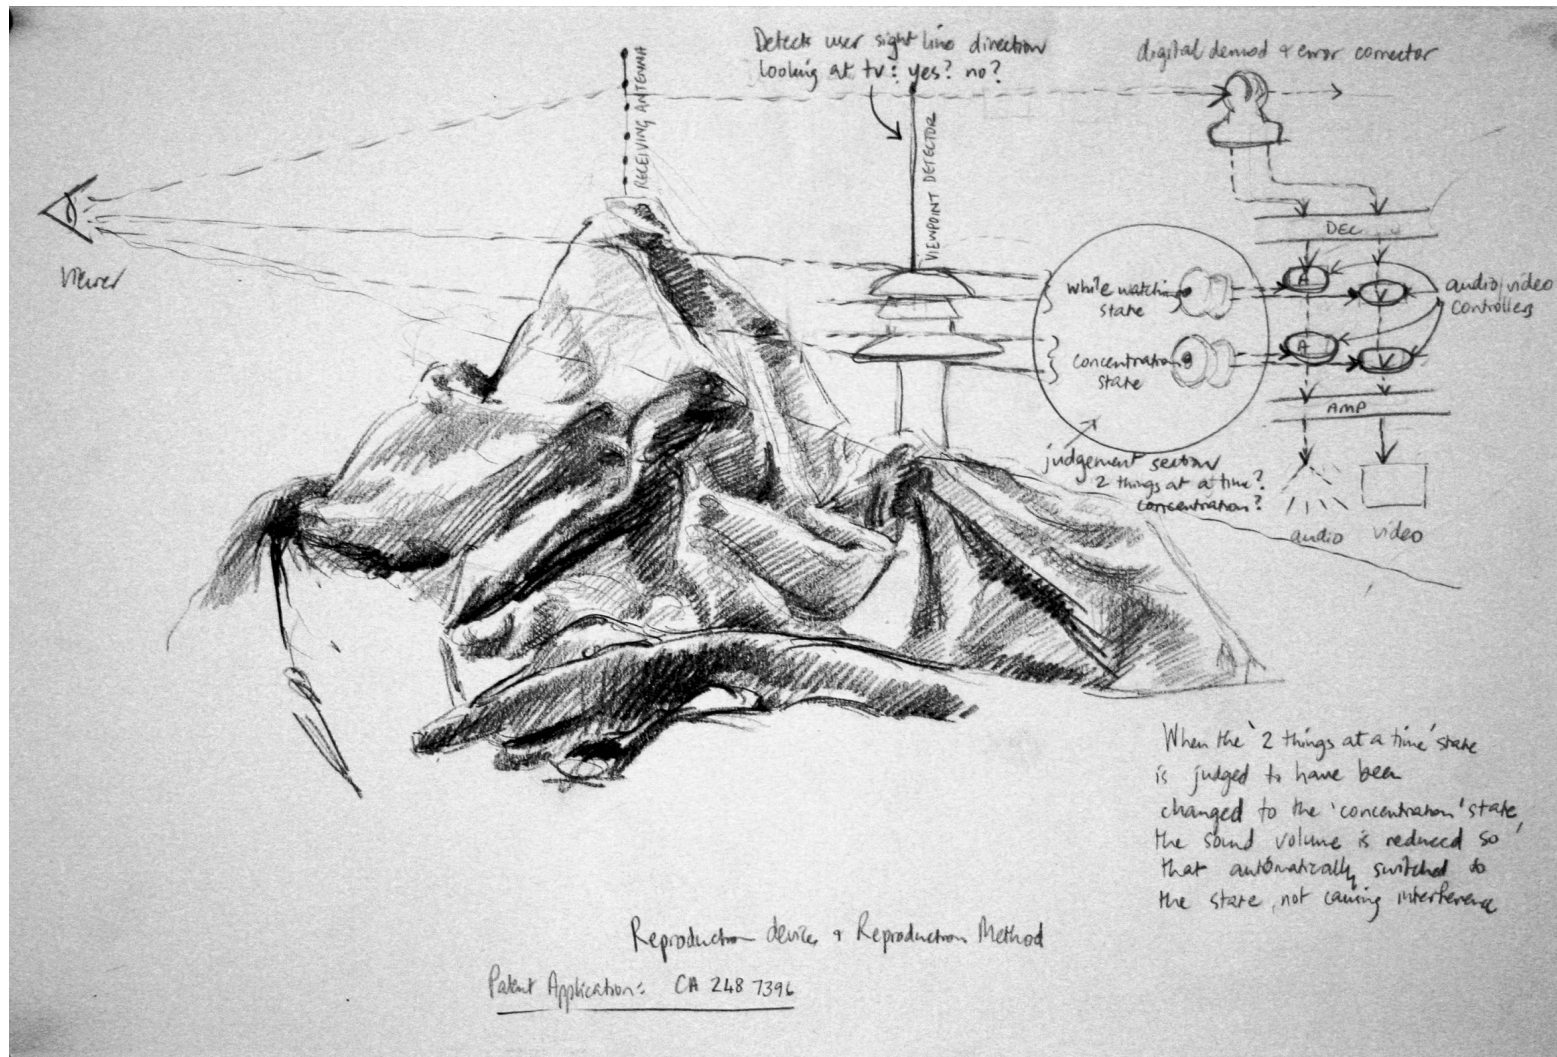 Detects user sight line direction
looking at tv: yes? no?
digital demod & error corrector
RECEIVING ANTENNA
VIEWPOINT DETECTOR
Viewer
DEC
while watching
state
A
V
audio/video
controllers
concentration
state
A
V
AMP
judgement section
2 things at a time?
concentration?
audio
video
When the '2 things at a time' state
is judged to have been
changed to the 'concentration' state,
the sound volume is reduced so
that automatically switched to
the state, not causing interference
Reproduction device & Reproduction Method
Patent Application: CA 248 7396